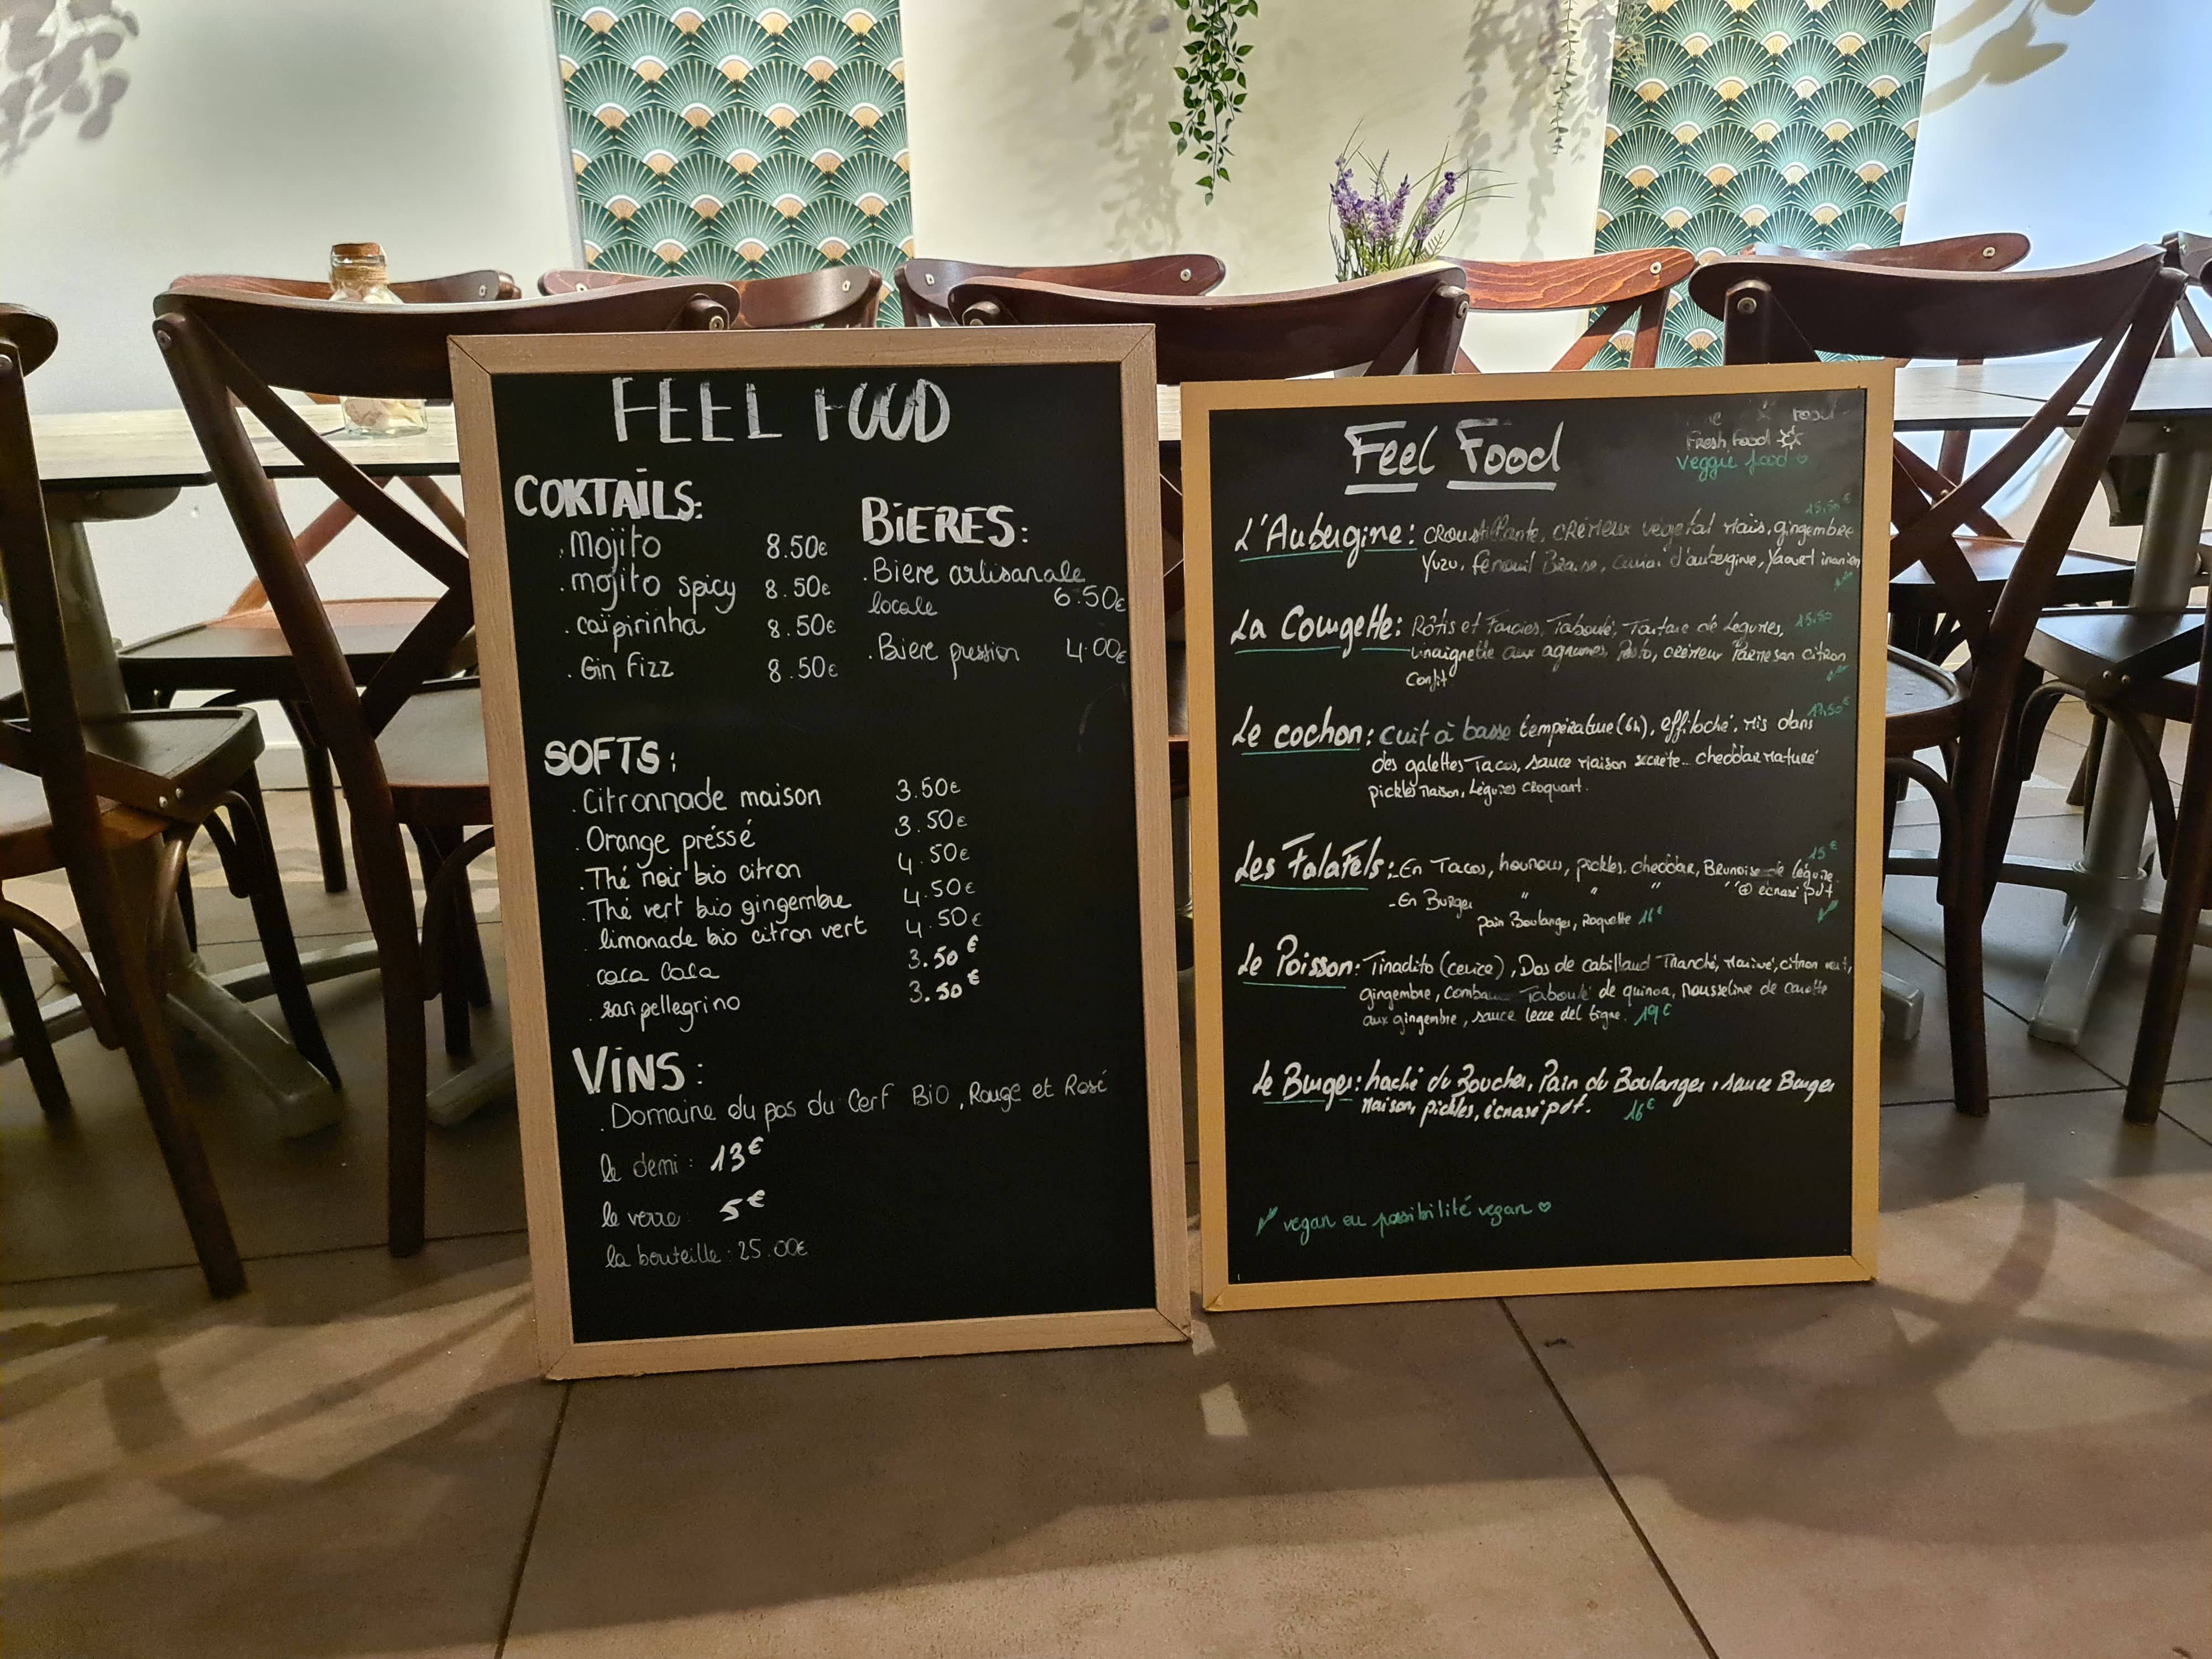 FEEL FOOD
COKTAILS:
. Mojito 8.50€
. mojito spicy 8.50€
. caïpirinha 8.50€
. Gin Fizz 8.50€
BIERES:
. Biere artisanale
locale 6.50€
. Biere pression 4.00€
SOFTS:
. Citronnade maison 3.50€
. Orange préssé 3.50€
. Thé noir bio citron 4.50€
. Thé vert bio gingembre 4.50€
. limonade bio citron vert 4.50€
. coca cola 3.50€
. san pellegrino 3.50€
VINS:
. Domaine du pas du Cerf BIO, Rouge et Rosé
le demi: 13€
le verre: 5€
la bouteille: 25.00€
Feel Food
Fresh Food
Veggie food
15,50€
L'Aubergine: croustillante, crémeux vegetal Maïs, gingembre
Yuzu, Fenouil Braisé, caviar d'aubergine, Yaourt iranien
La Courgette: Rôtis et Farcies, Taboulé, Tartare de Legumes, 15,50
vinaigrette aux agrumes, Pesto, crémeux Parmesan citron
Confit
17,50€
Le cochon: cuit à basse température (6h), effiloché, Mis dans
des galettes Tacos, sauce Maison secrète.. cheddar Maturé
pickles Maison, Légumes croquant.
15€
Les Falafels: - En Tacos, houmous, pickles, cheddar, Brunoise de légume.
- En Burger " " " " écrasé pdt
Pain Boulanger, Roquette 16€
Le Poisson: Tiradito (cevice), Dos de cabillaud Tranché, Mariné, citron vert,
gingembre, Taboulé de quinoa, Mousseline de carotte
aux gingembre, sauce lecce del tigre. 19€
Le Burger: haché du Boucher, Pain du Boulanger, sauce Burger
Maison, pickles, écrasé pdt. 16€
vegan ou possibilité vegan